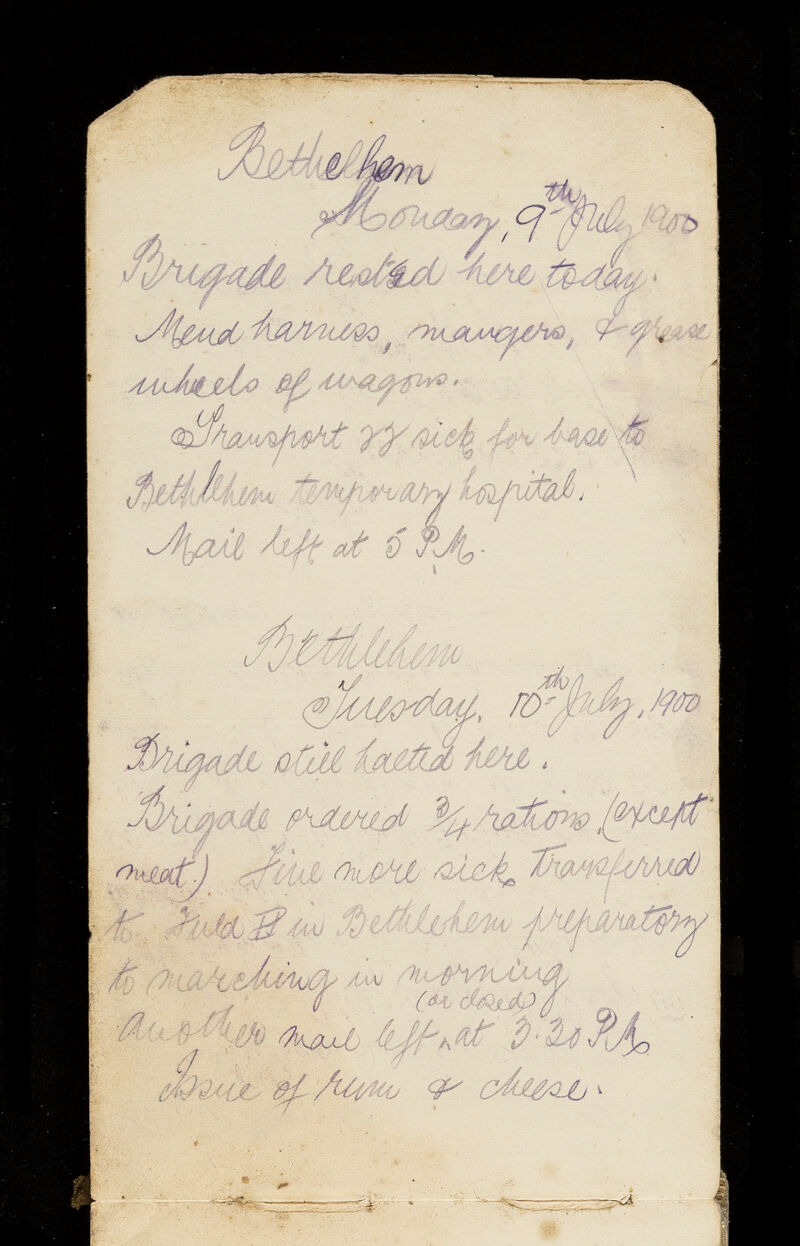 Bethelhem
Monday, 9th July 1900
Brigade rested here today.
Mend harness, mangers, & grease
wheels of wagons.
Transport 22 sick for base to
Bethlehem temporary hospital.
Mail left at 5 P.M.
Bethlehem
Tuesday, 10th July, 1900
Brigade still halted here.
Brigade ordered 3/4 rations (except
meat.) Five more sick transferred
to Field in Bethlehem preparatory
to marching in morning
(or closed)
Another mail left ^ at 3.30 P.M.
Issue of rum & cheese.